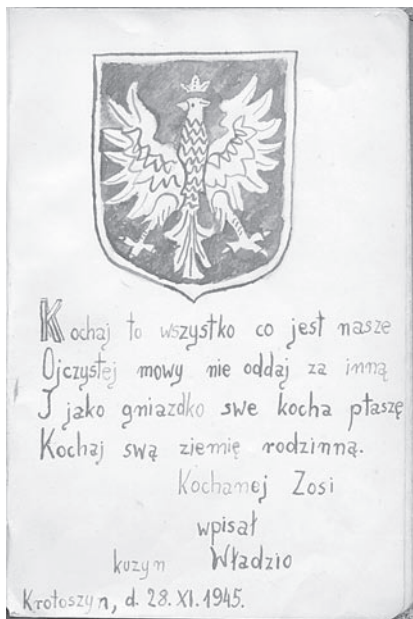 Kochaj to wszystko co jest nasze
Ojczystej mowy nie oddaj za inną
I jako gniazdko swe kocha ptaszę
Kochaj swą ziemię rodzinną.
Kochanej Zosi
wpisał
kuzyn Władzio
Krotoszyn, d. 28.XI.1945.